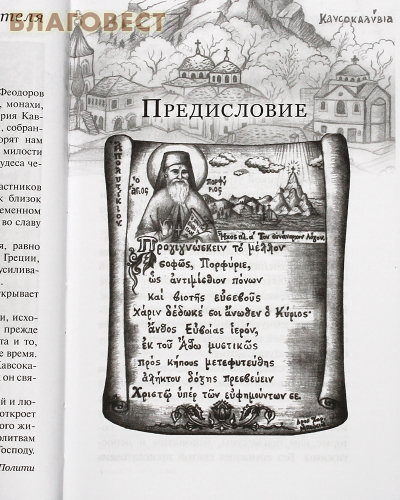 БЛАГОВЕСТ
ителя
ΚΑΥΣΟΚΑΛΥΒΙΑ
ПРЕДИСЛОВИЕ
Феодоров
, монахи,
рия Кав-
, собран-
орят нам
милости
удеса че-
астников
к близок
ременном
во славу
я, равно
Греции,
усилива-
крывает
и, исхо-
прежде
та и то,
е время.
Кавсока-
он свя-
й и лю-
откроет
ого жи-
литвам
Господу.
Полити
ἈΠΟΛΥΤΙΚΙΟΝ
Ὁ ΑΓΙΟΣ
ΠΟΡΦΥΡΙΟΣ
Ἦχος πλ. α΄ Τον συνάναρχον Λόγον.
Προγιγνώσκειν τό μέλλον
σοφῶς, Πορφύριε,
ὡς ἀντιμίσθιον πόνων
καί βιοτῆς εὐσεβοῦς
Χάριν δέδωκέ σοι ἄνωθεν ὁ Κύριος·
ἄνθος Εὐβοίας ἱερόν,
ἐκ τοῦ Ἄθω μυστικῶς
πρός κήπους μετεφυτεύθης
ἀλήκτου δόξης πρεσβεύειν
Χριστῷ ὑπέρ τῶν εὐφημούντων σε.